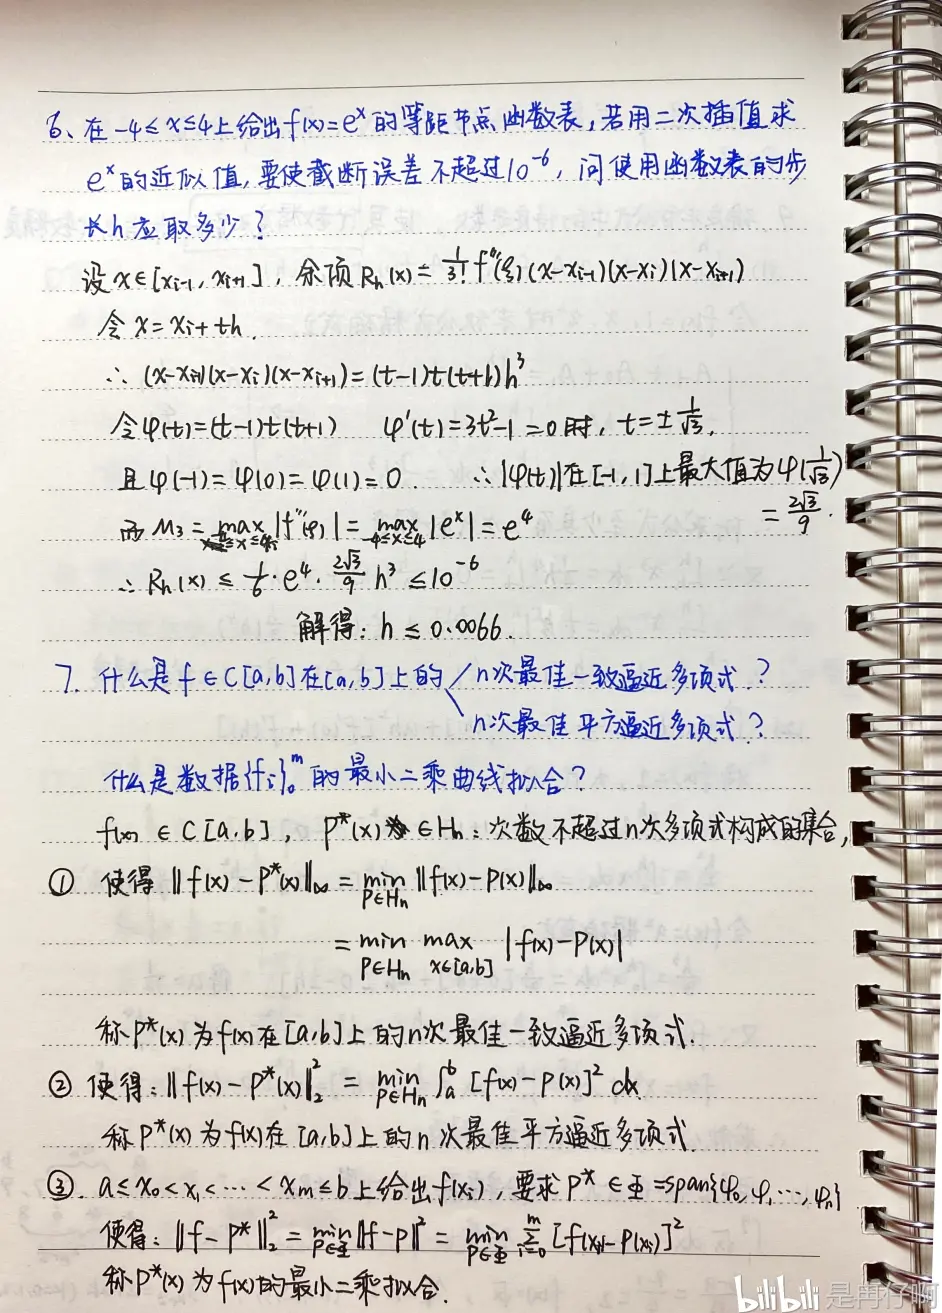 6、在 -4≤x≤4上给出f(x)=eˣ的等距节点函数表，若用二次插值求
eˣ的近似值，要使截断误差不超过10⁻⁶，问使用函数表的步
长h应取多少？
设x∈[xᵢ₋₁, xᵢ₊₁]，余项Rₕ(x) = 1/3! f'''(ξ)(x-xᵢ₋₁)(x-xᵢ)(x-xᵢ₊₁)
令x=xᵢ+th.
∴ (x-xᵢ₋₁)(x-xᵢ)(x-xᵢ₊₁)=(t-1)t(t+1)h³
令φ(t)=(t-1)t(t+1) φ'(t)=3t²-1=0时, t=±1/√3.
且φ(-1)=φ(0)=φ(1)=0. ∴|φ(t)|在[-1,1]上最大值为φ(1/√3)
= 2√3/9.
而M₃= max |f'''(ξ)| = max -4≤x≤4 |eˣ|=e⁴
∴ Rₕ(x) ≤ 1/6·e⁴·2√3/9 h³ ≤10⁻⁶
解得: h ≤ 0.0066.
7. 什么是f∈C[a,b]在[a,b]上的 n次最佳一致逼近多项式？
n次最佳平方逼近多项式？
什么是数据{fᵢ}₀ᵐ的最小二乘曲线拟合？
f(x) ∈ C[a,b], P*(x) ∈ Hₙ: 次数不超过n次多项式构成的集合,
① 使得 ‖f(x)-P*(x)‖∞ = min P∈Hₙ ‖f(x)-P(x)‖∞
= min P∈Hₙ max x∈[a,b] |f(x)-P(x)|
称P*(x)为f(x)在[a,b]上的n次最佳一致逼近多项式.
② 使得: ‖f(x)-P*(x)‖₂² = min P∈Hₙ ∫ₐᵇ [f(x)-P(x)]² dx.
称P*(x)为f(x)在[a,b]上的n次最佳平方逼近多项式
③. a≤x₀<x₁<⋯<xₘ≤b上给出f(xᵢ), 要求P*∈Φ=span{φ₀,φ₁,⋯,φₙ}
使得: ‖f-P*‖₂² = min P∈Φ ‖f-P‖² = min P∈Φ Σᵢ₌₀ᵐ [f(xᵢ)-P(xᵢ)]²
称P*(x)为f(x)的最小二乘拟合.
bilibili 是再仔啊